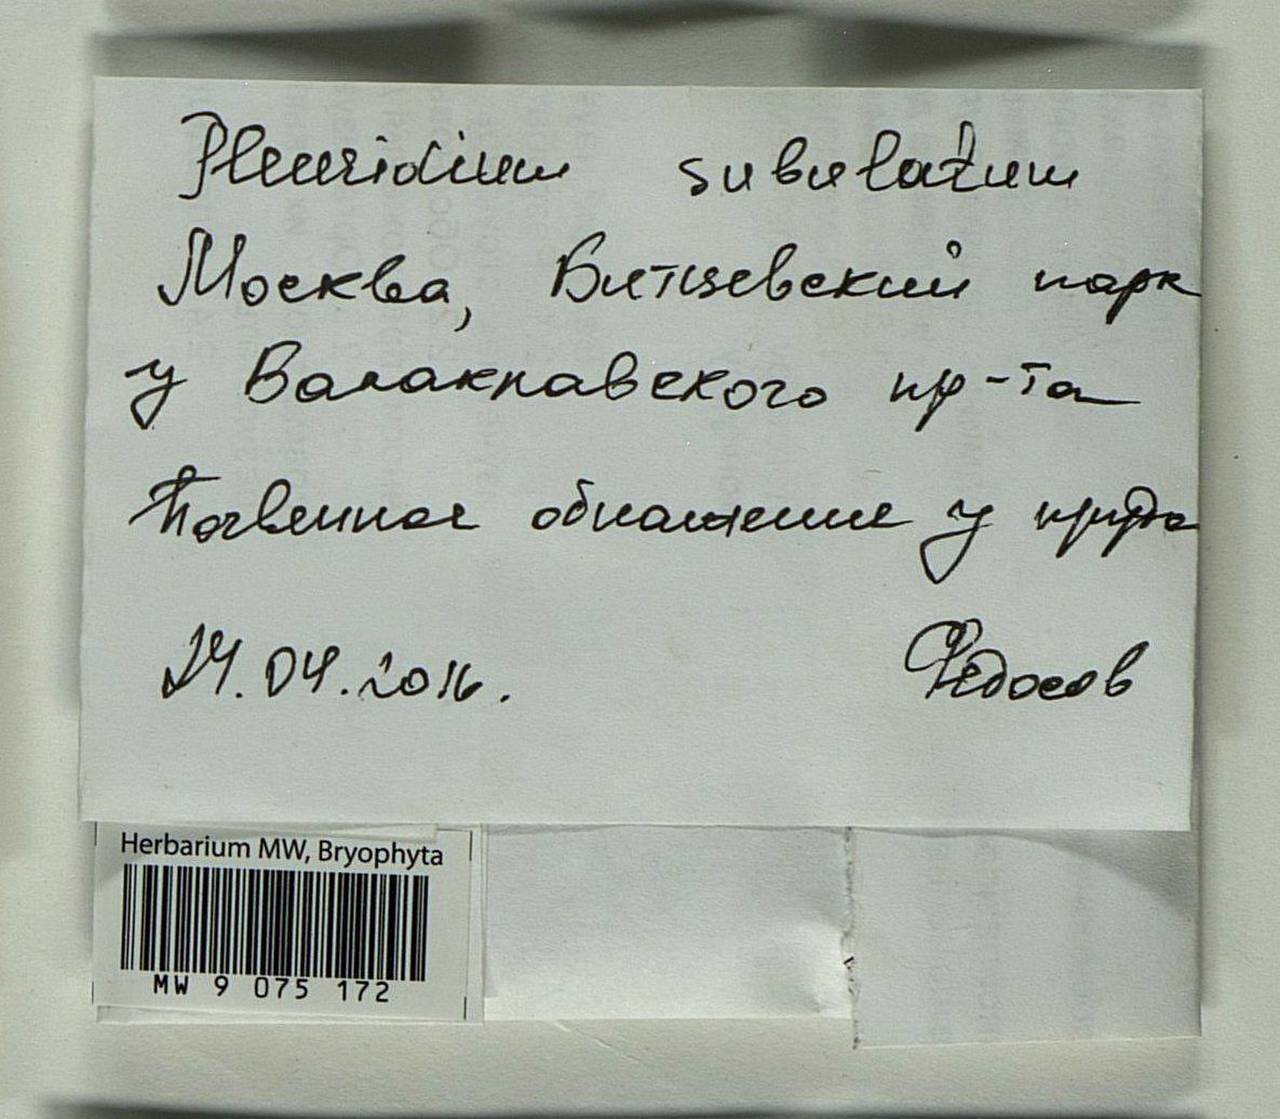 Pleuridium subulatum
Москва, Битцевский парк
у Балаклавского пр-та
Почвенное обнажение у пруда
24.04.2016.
Федосов
Herbarium MW, Bryophyta
MW 9 075 172